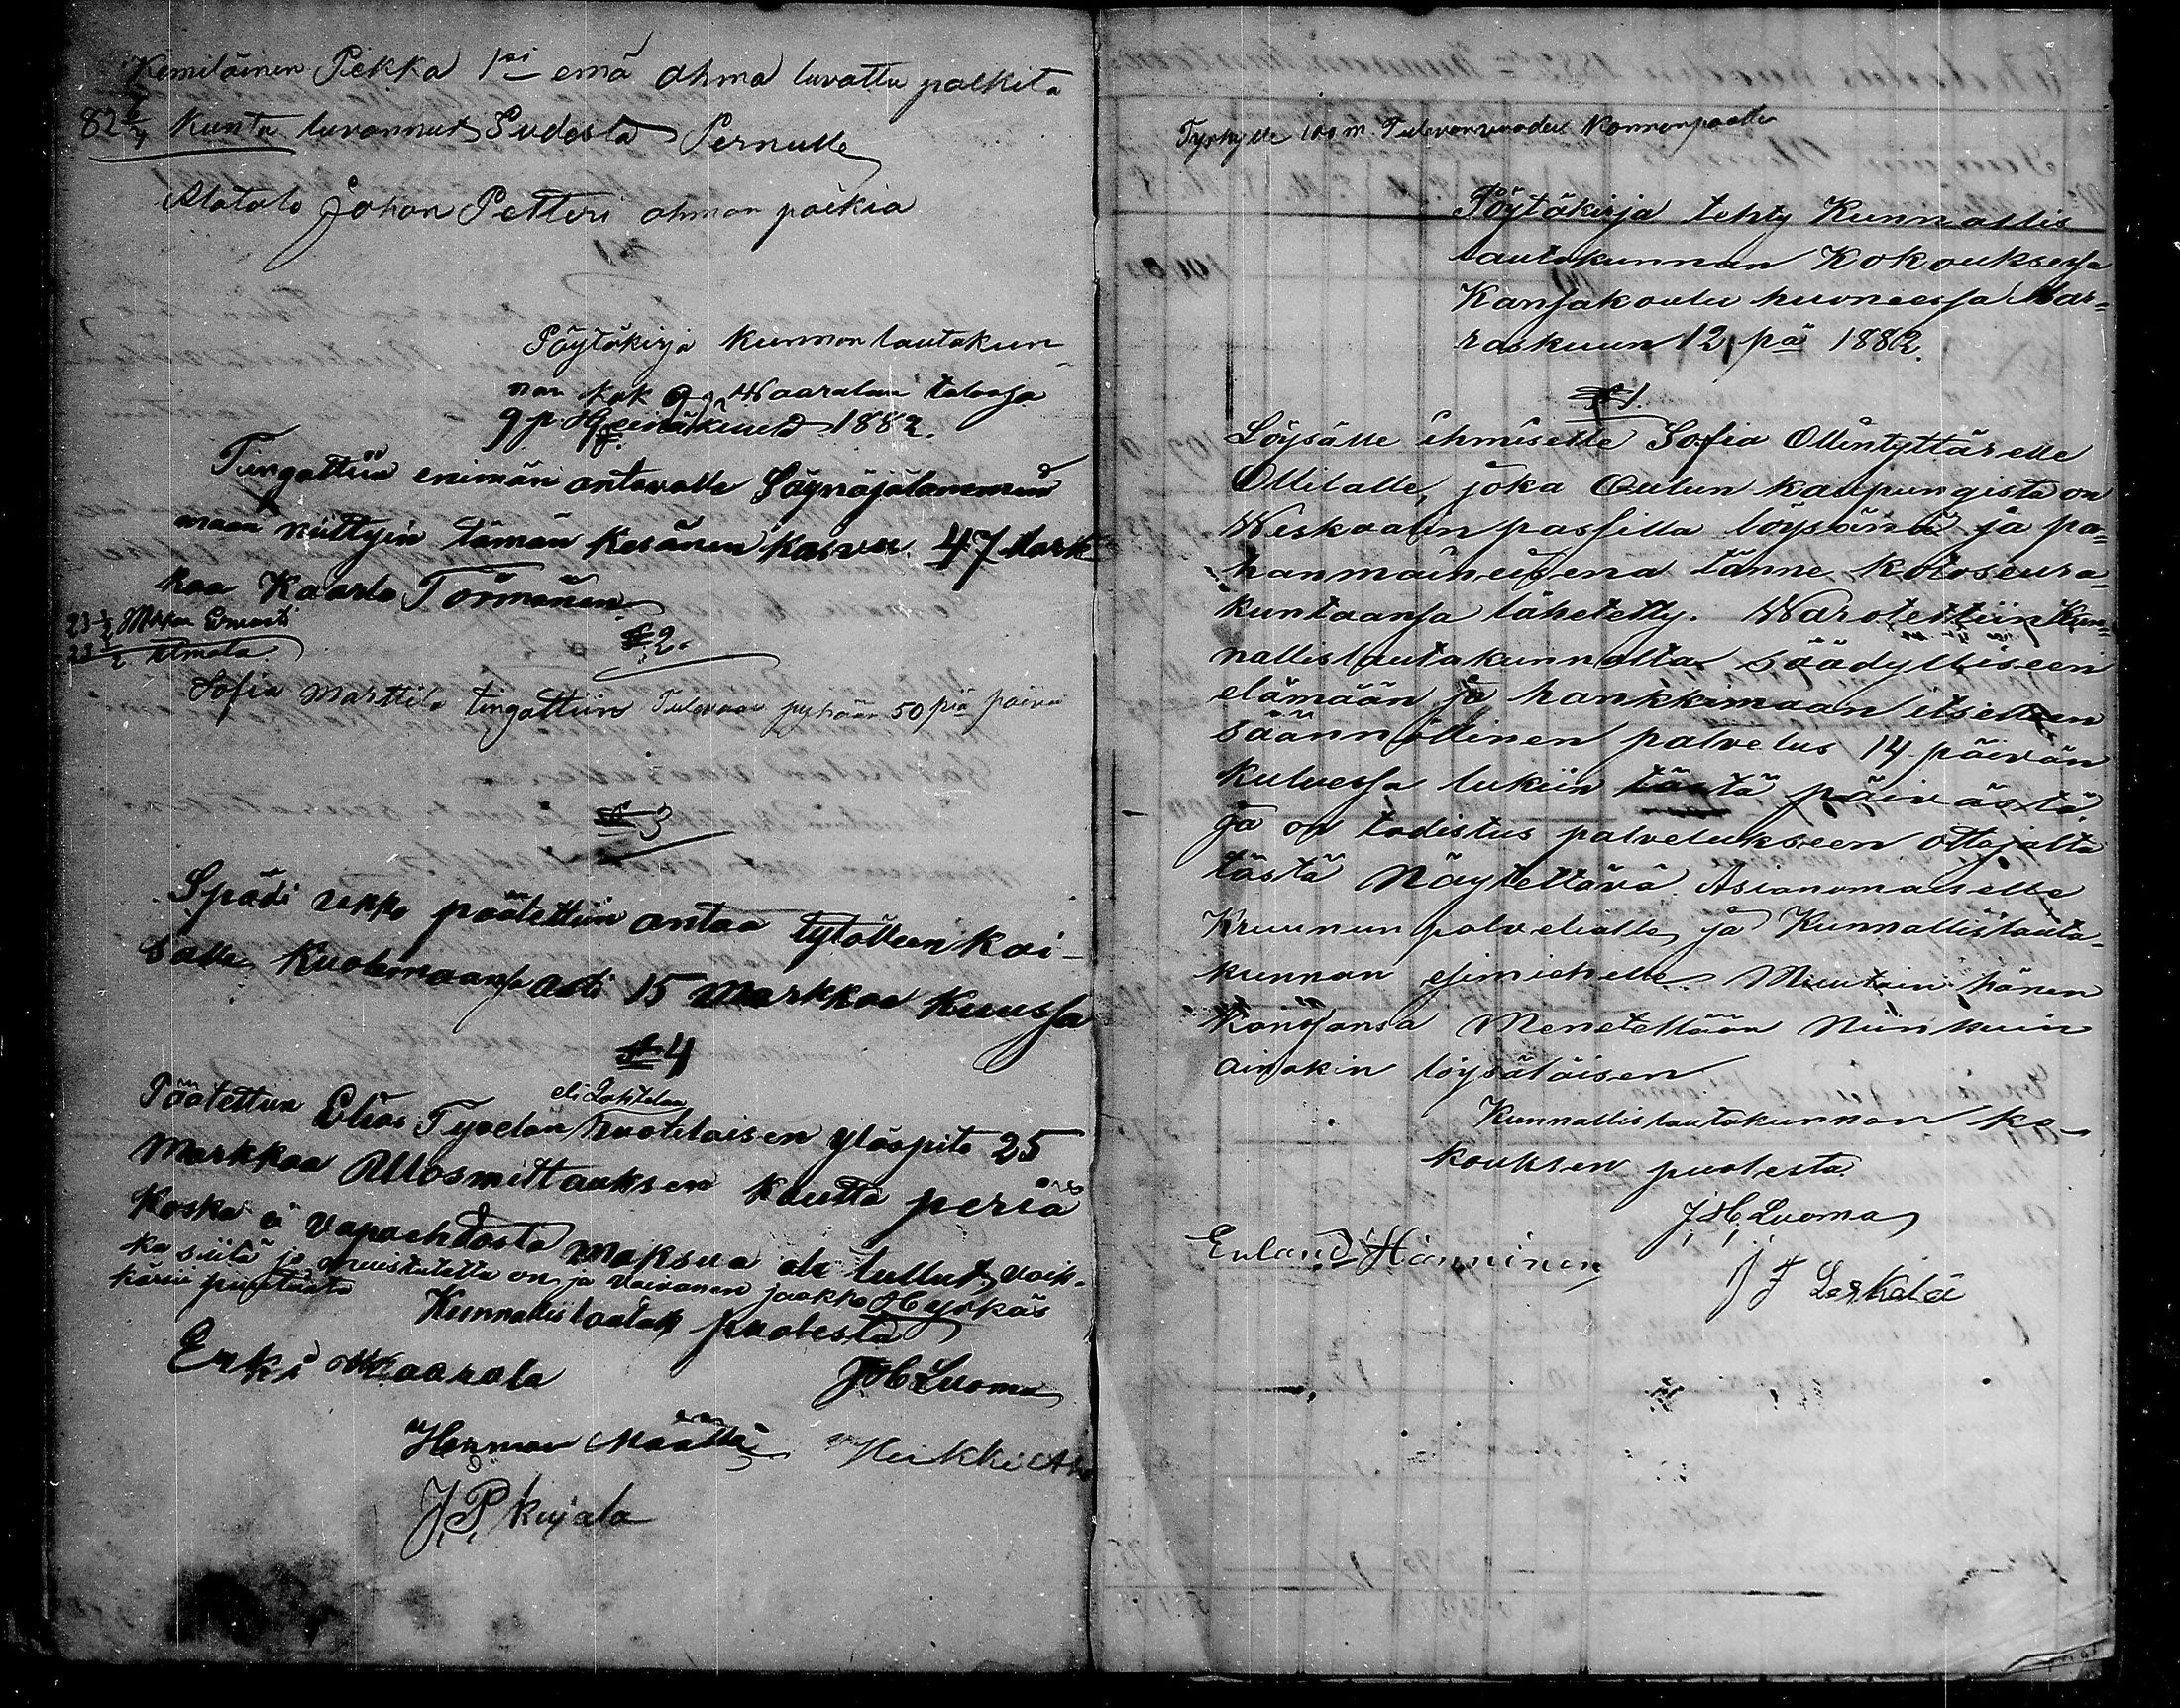 Kemiläinen Pekka 1si emä ahma luvattu palkita
82 6/7 kunta luvannut Sudesta Pernulle
Alatalo Johan Petteri ahman poikia
Pöytäkirja kunnan lautakun-
nan kok Waaralan talossa
9 p Heinäkuuta 1882.
Tingattiin enimän antavalle Säynäjälammin
maan niittyin tämän kesänen kasvu 47 Mark
kaa Kaarlo Törmänen
23 1/2
23 1/2 Elmala
§ 2.
Sofia Marttila tingattiin Tulevaan pyhään 50 piä päivä
§ 3
Spädi ukko päätettiin antaa tytölleen Kai-
salle Kuolemaansa asti 15 Markkaa Kuussa
§ 4
eli Lahtelan
Päätettiin Elias Tyvelän huotelaisen ylöspito 25
Markkaa Ulosmittauksen kautta periä
Koska ei vapaehtosta maksua ole tullut, vaik-
ka siitä jo muistutettu on ja Vaivanen jaakko Hyrkäs
kärsii puutosta
Kunnallislautak puolesta
Erki Waarala JH Luoma
Herman Määttä Heikki Aho
J. P. kujala
Tyrhylle 100 m Tulevanvuoden Kannonpäälle
Pöytäkirja tehty Kunnallis
lautakunnan Kokouksessa
Kansakoulu huoneessa Mar-
raskuun 12 pä 1882.
§ 1.
Löysälle ihmiselle Sofia Ollintyttärelle
Ollilalle, joka Oulun kaupungista on
Weskaalin passilla löysänä ja pa-
hanmaineisena tänne kotoseura-
kuntaansa lähetetty. Warotettiin Kun-
nallislautakunnalta säädylliseen
elämään ja hankkimaan itselleen
säännöllinen palvelus 14 päivän
kuluessa lukiin tästä päivästä,
ja on todistus palvelukseen ottajalta
tästä Näytettävä Asianomaiselle
Kruunun palvelialle ja Kunnallislauta-
kunnan esimiehelle. Muutoin hänen
kanssansa Menetellään Niinkuin
ainakin löysäläisen
Kunnallislautakunnan ko-
kouksen puolesta
J, H, Luoma
Erland Hänninen
J F Leskelä